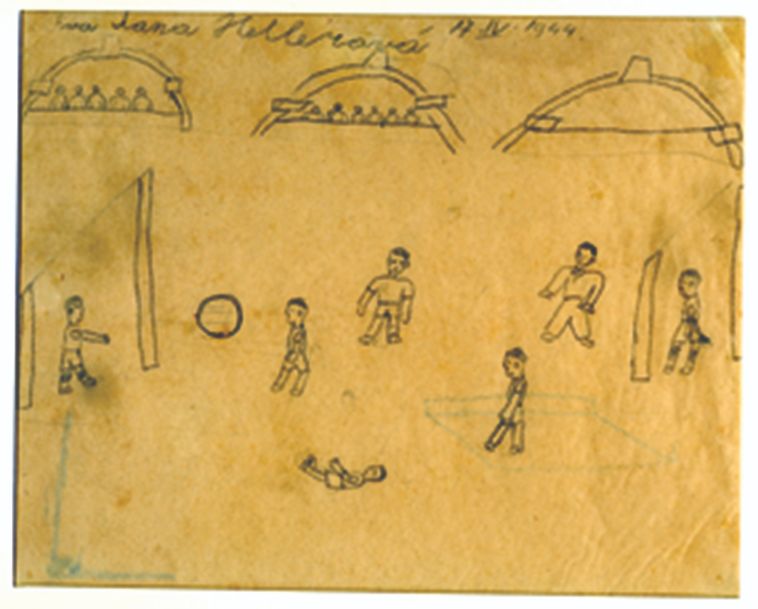 Eva Hana Hellerová 17 IV. 1944.